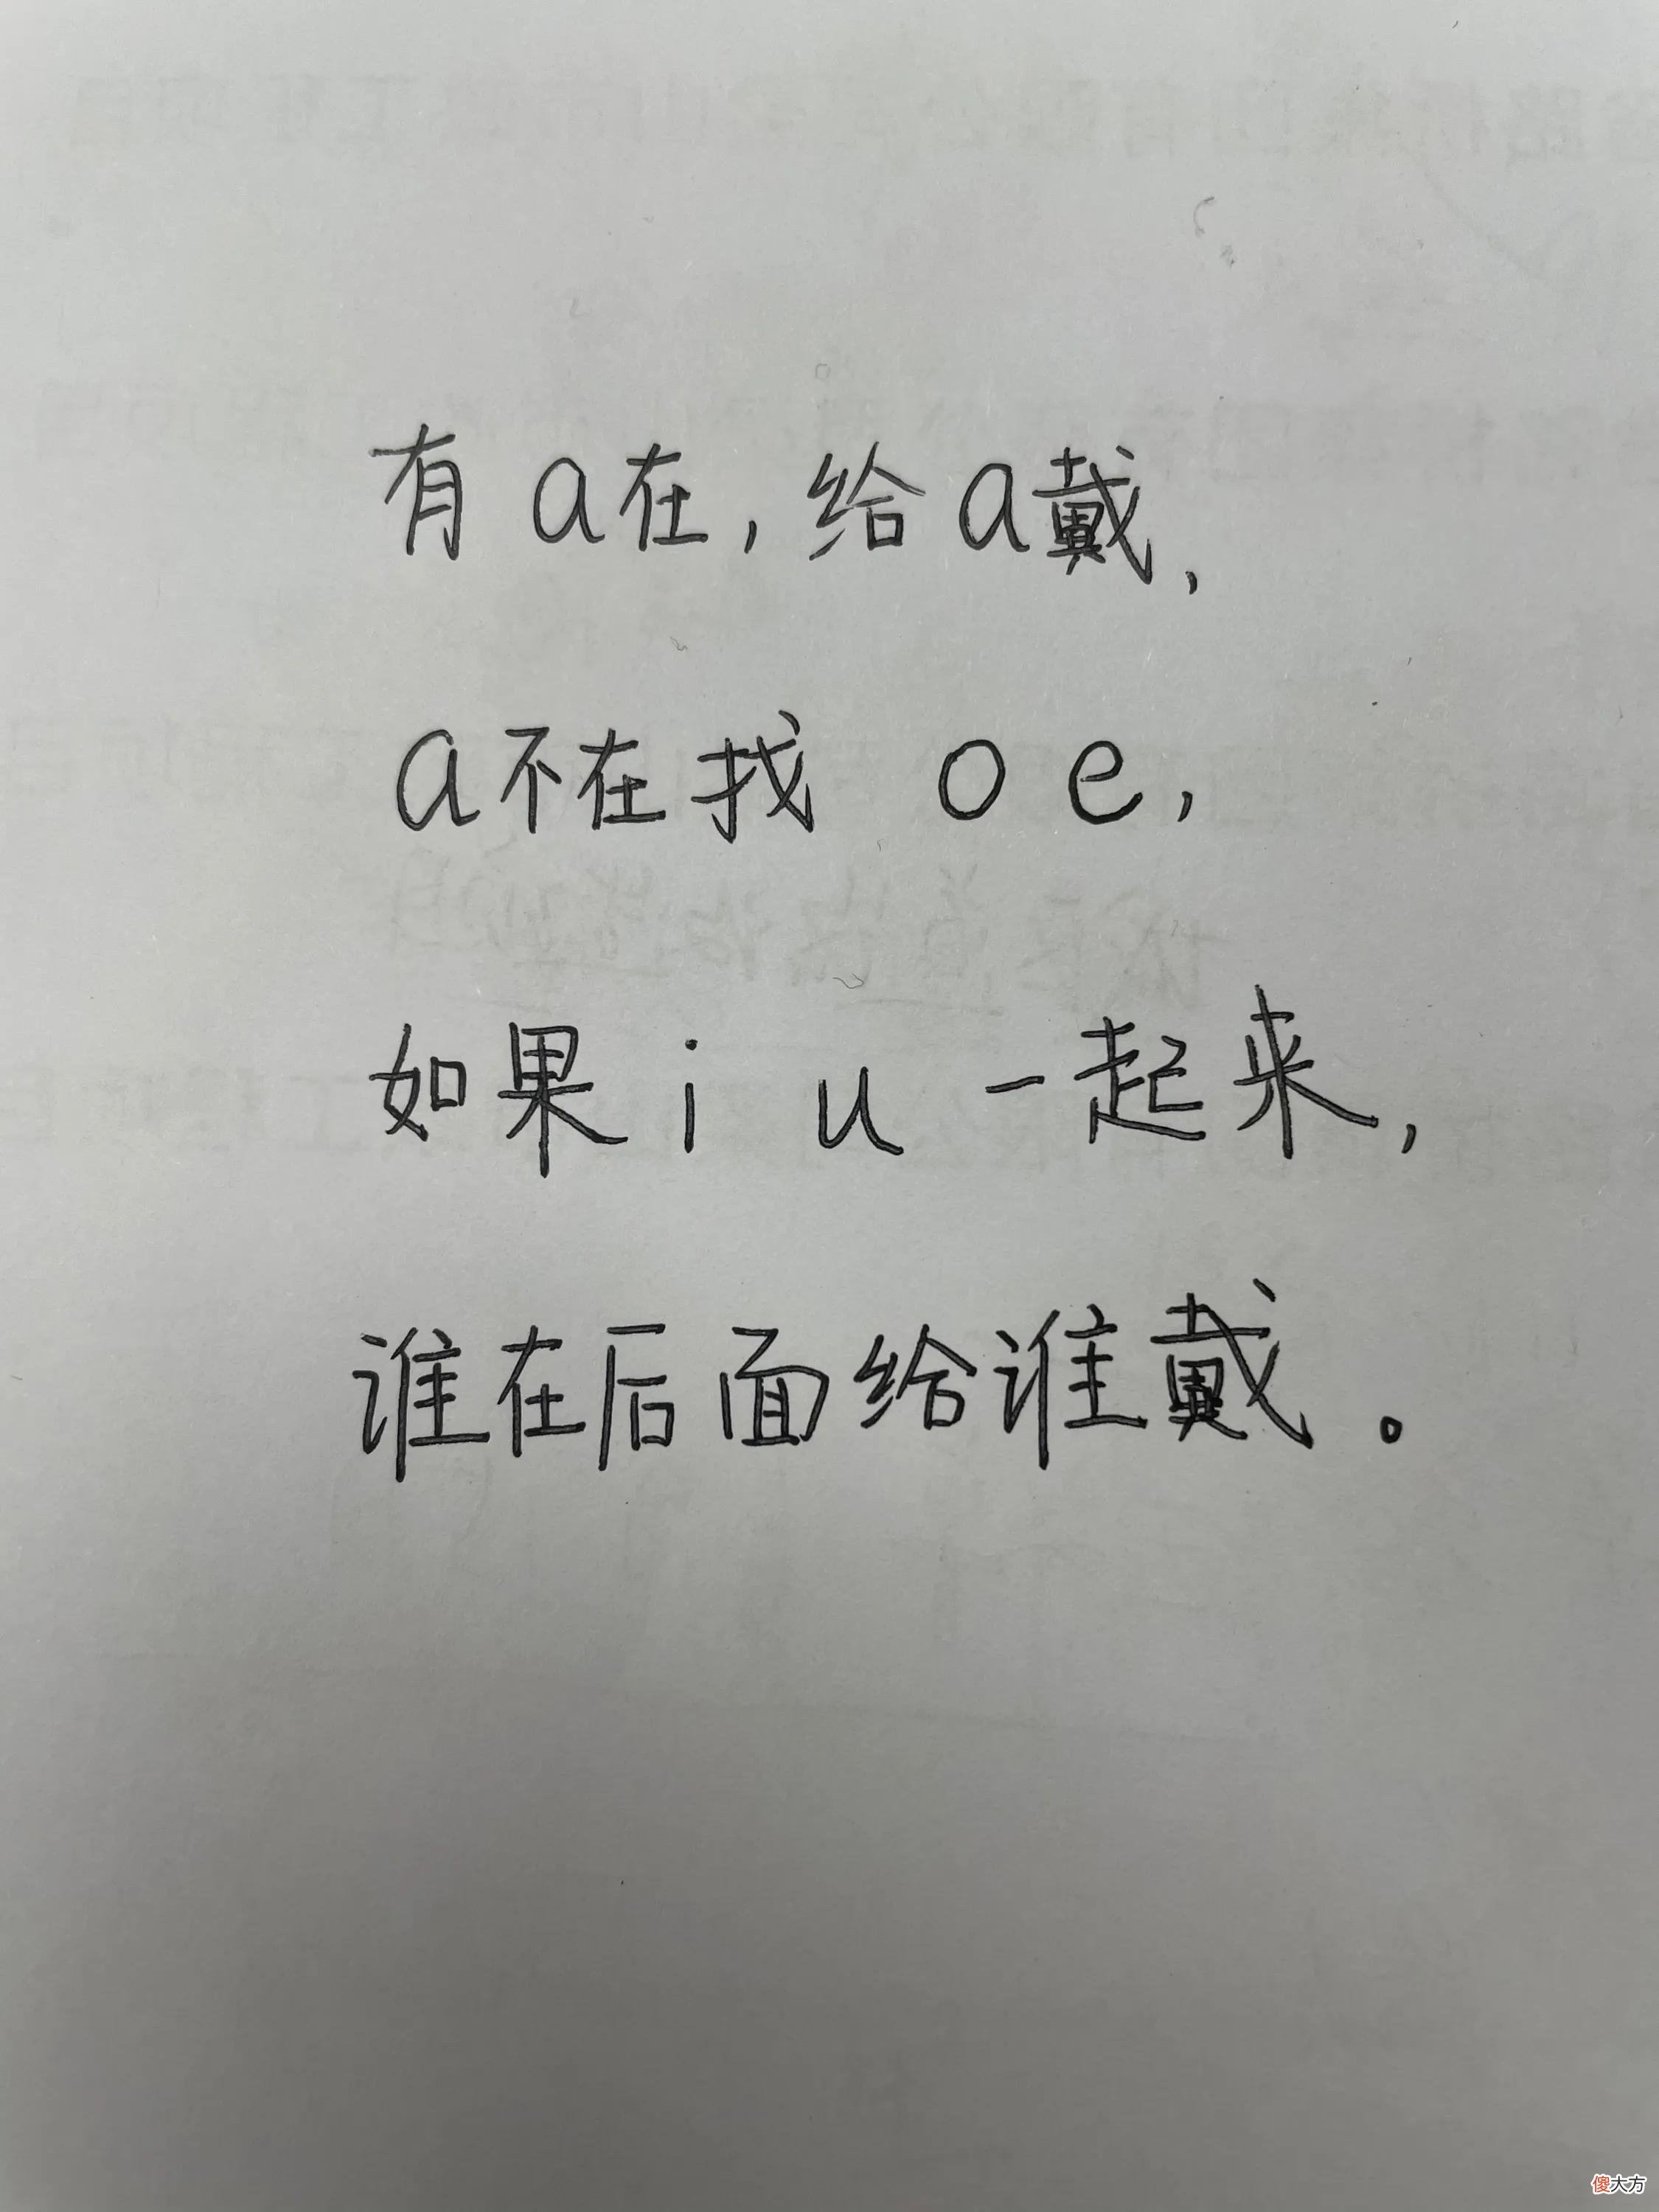 有a在，给a戴，
a不在找 o e，
如果 i u 一起来，
谁在后面给谁戴。
傻大方